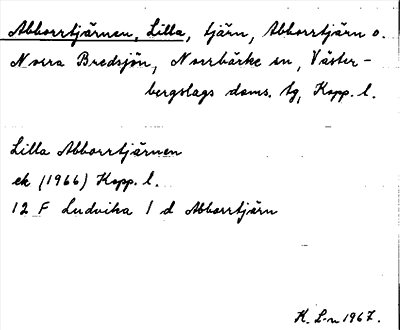 Abborrtjärnen, Lilla, tjärn, Abborrtjärn o.
Norra Bredsjön, Norrbärke sn, Väster-
bergslags doms. tg, Kopp. l.
Lilla Abborrtjärnen
ek (1966) Kopp. l.
12 F Ludvika 1 d Abborrtjärn
K. L-n 1967.